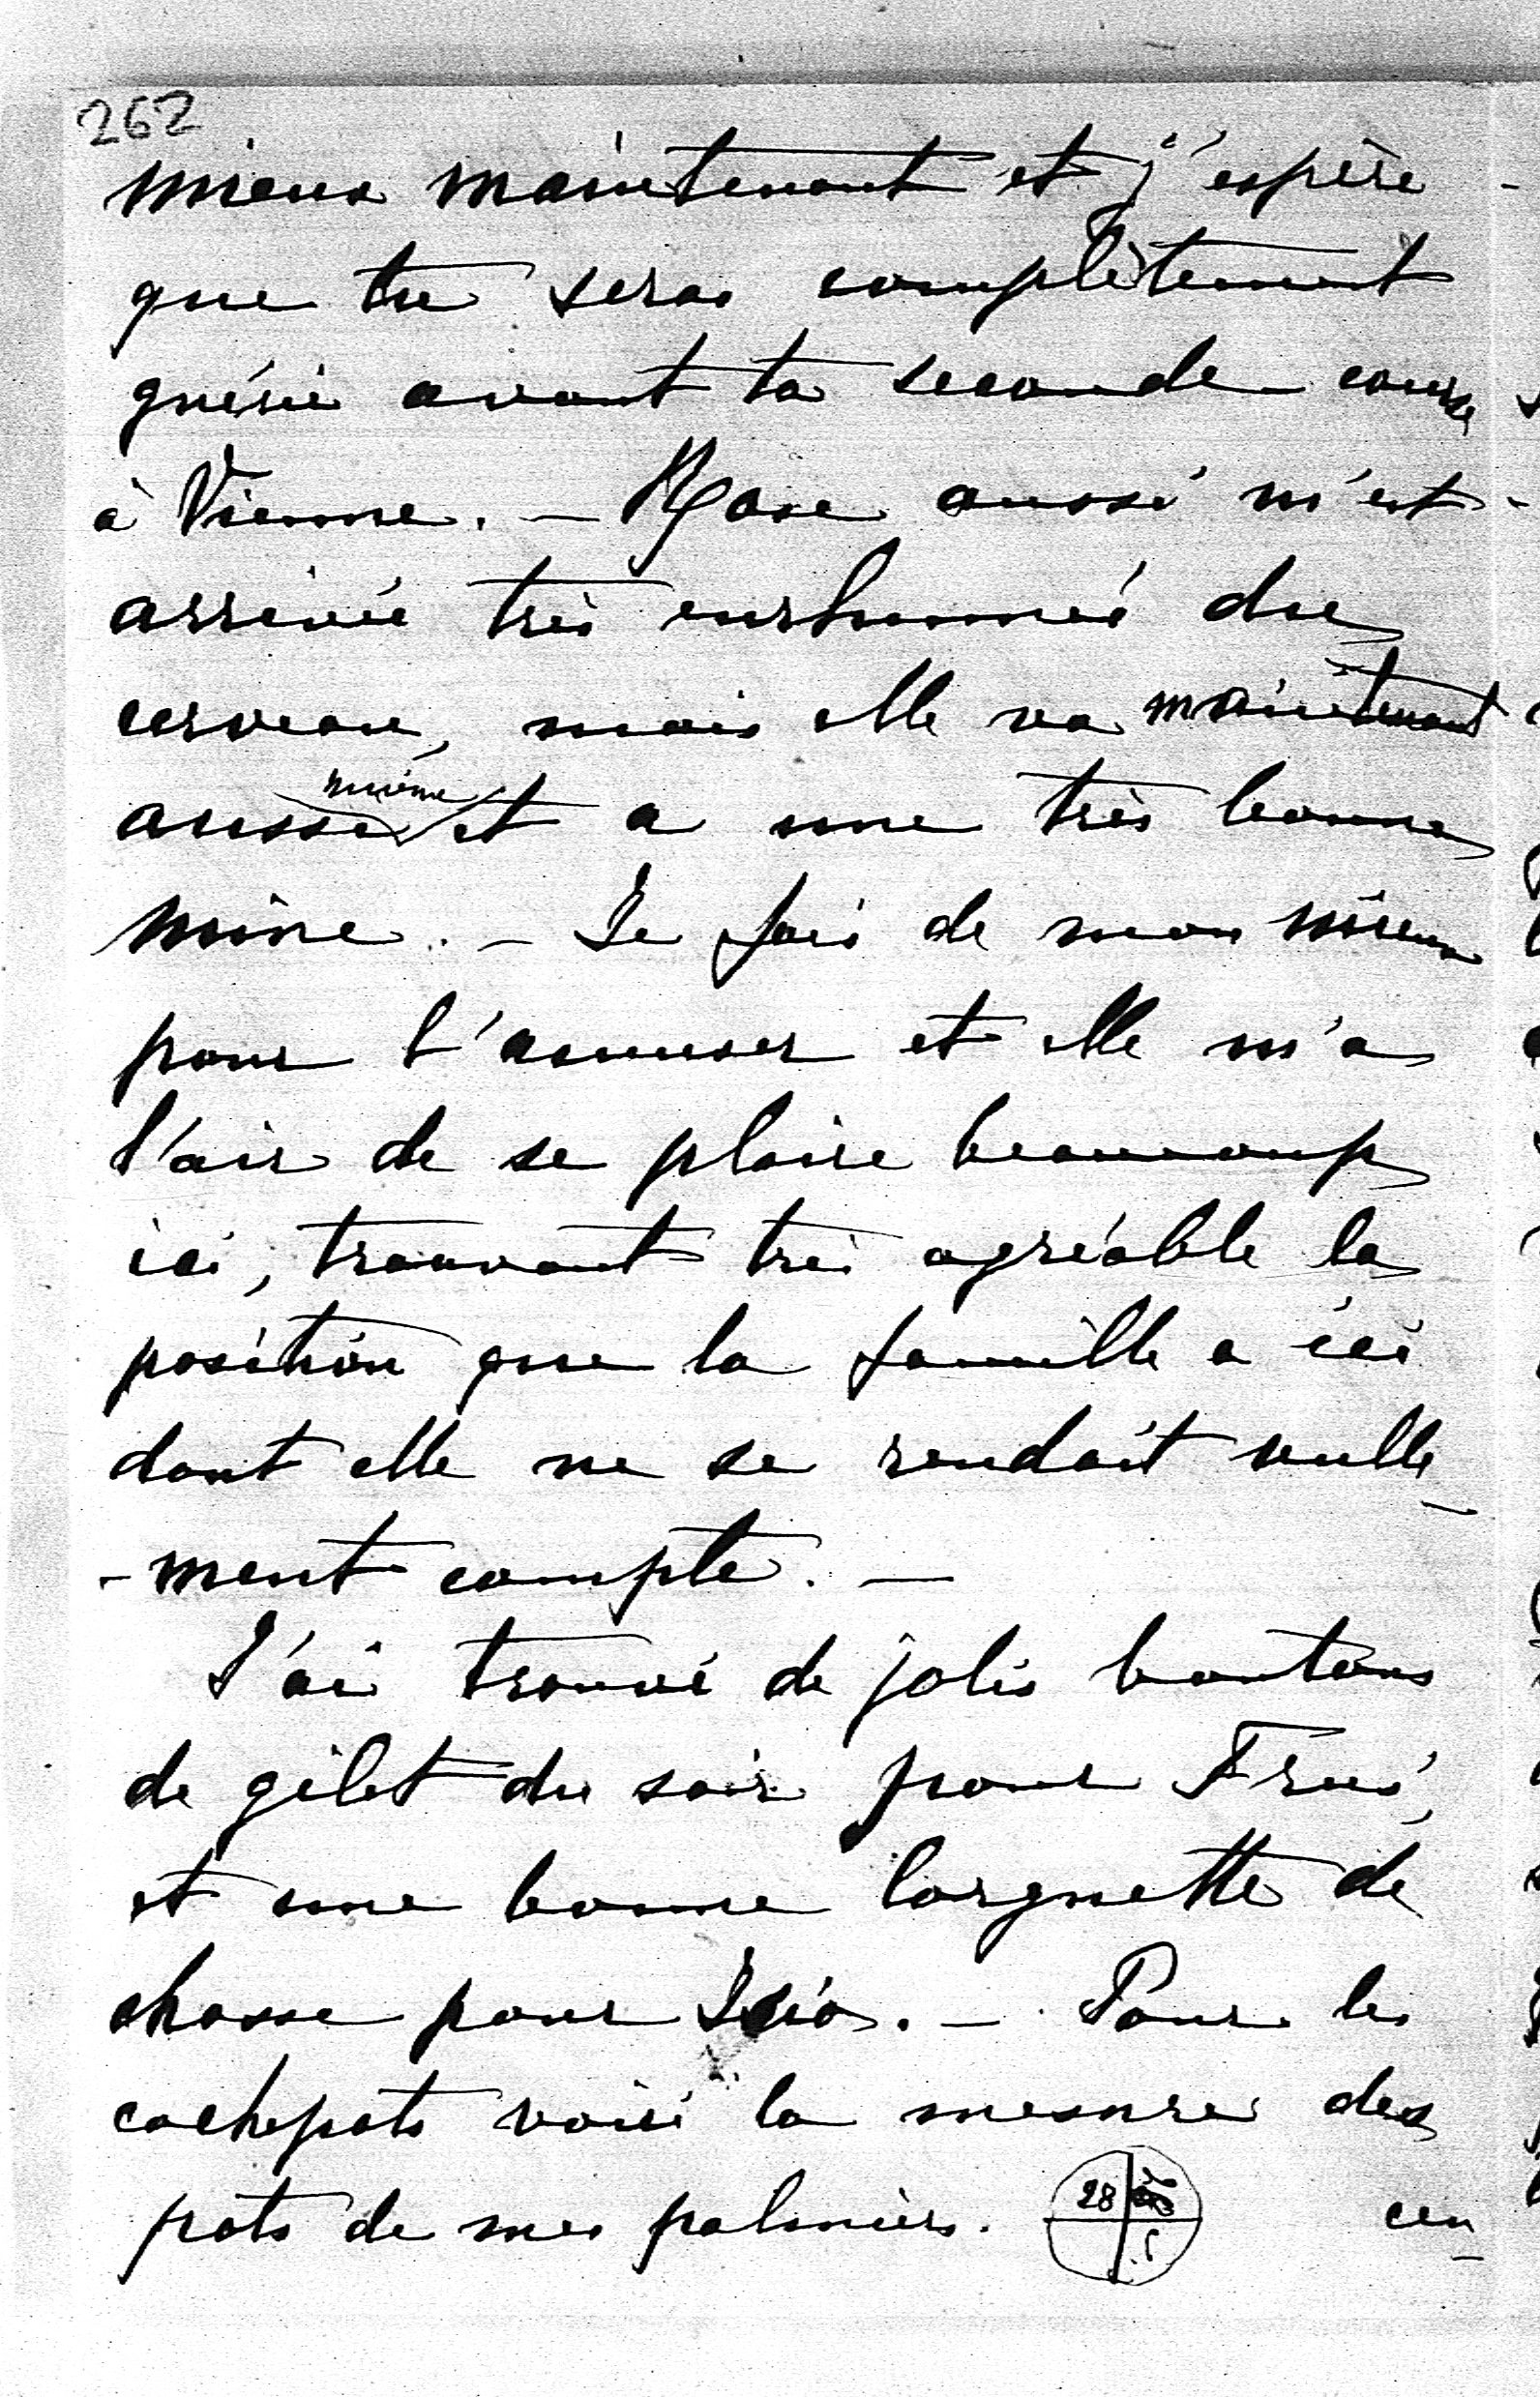 262
mieux maintenant et j'espère
que tu seras complètement
guérie avant ta seconde course
à Vienne. — Rose aussi m'est
arrivée très enrhumée du
cerveau, mais elle va maintenant
aussi mieux et a une très bonne
mine. — Je fais de mon mieux
pour l'amuser et elle m'a
l'air de se plaire beaucoup
ici, trouvant très agréable la
position que la famille a ici
dont elle ne se rendait nulle-
-ment compte. —
J'ai trouvé de jolis boutons
de gilet du soir pour
et une bonne lorgnette de
chasse pour . — Pour les
cachepots voici la mesure des
pots de mes palmiers. 28 cen-